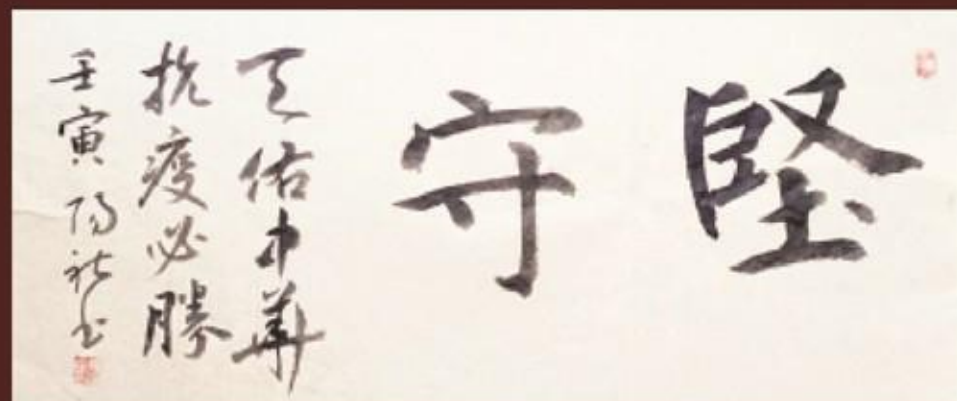 堅守
天佑中華
抗疫必勝
壬寅 陽社书